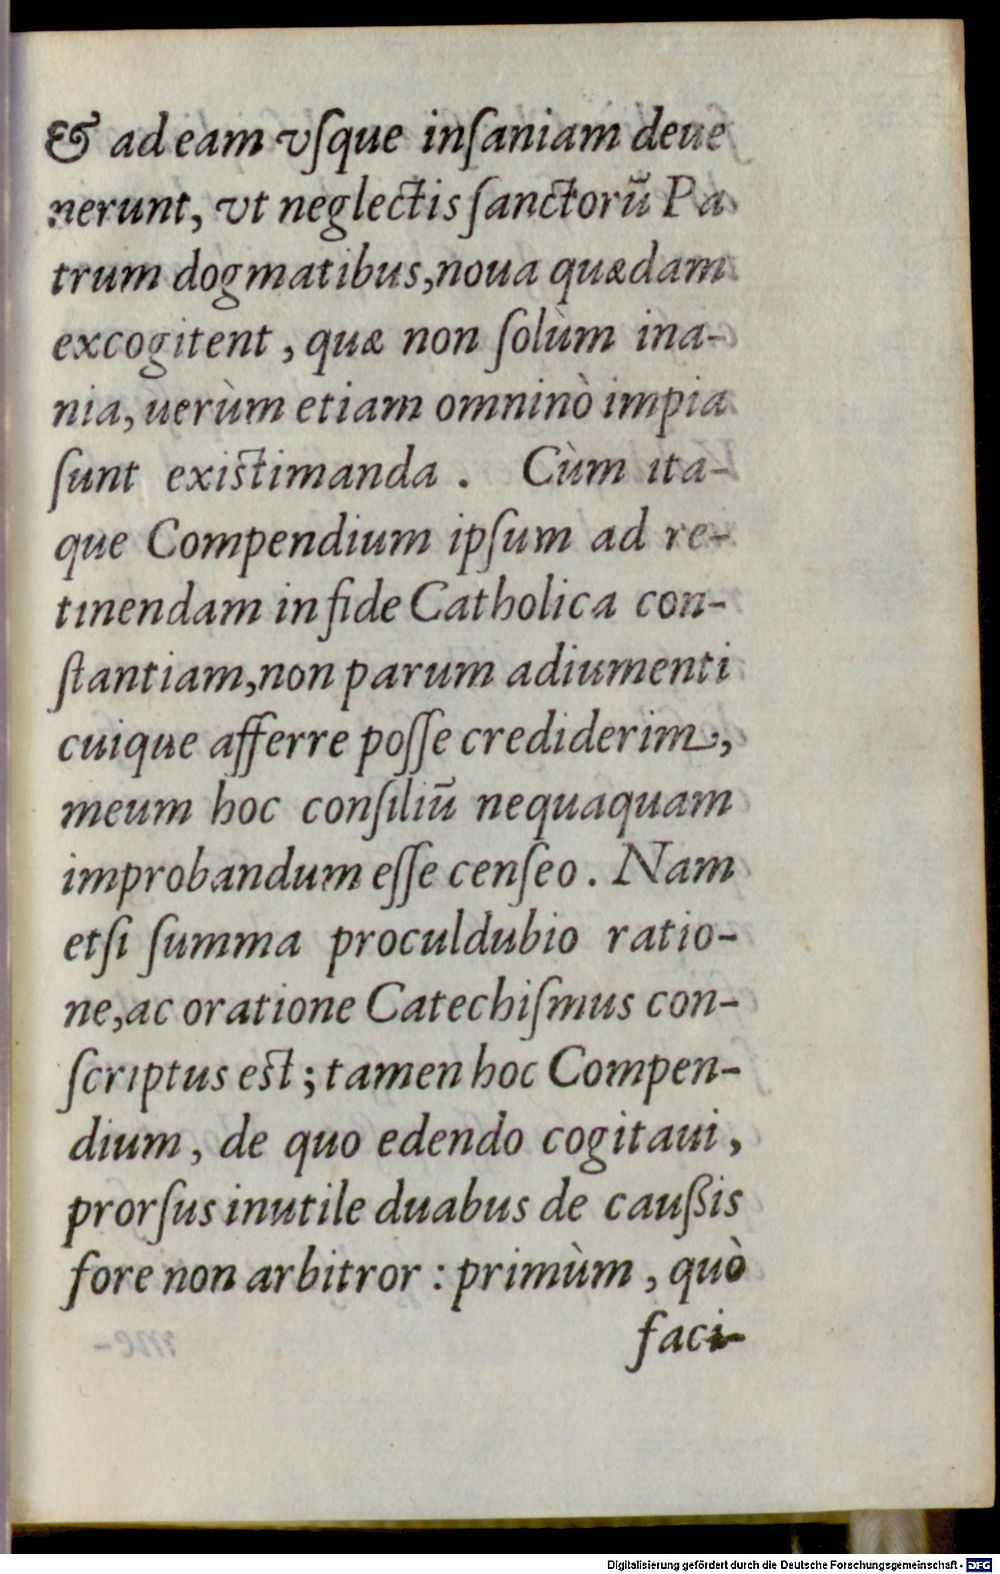 & ad eam vſque inſaniam deue
nerunt, vt neglectis ſanctorū Pa
trum dogmatibus, noua quædam
excogitent, quæ non ſolùm ina-
nia, uerùm etiam omninò impia
ſunt existimanda. Cùm ita-
que Compendium ipſum ad re-
tinendam in fide Catholica con-
ſtantiam, non parum adiumenti
cuique afferre poſſe crediderim,
meum hoc conſiliū nequaquam
improbandum eſſe cenſeo. Nam
etſi ſumma proculdubio ratio-
ne, ac oratione Catechiſmus con-
ſcriptus est; tamen hoc Compen-
dium, de quo edendo cogitaui,
prorſus inutile duabus de cauſsis
fore non arbitror: primùm, quò
faci-
Digitalisierung gefördert durch die Deutsche Forschungsgemeinschaft - DFG